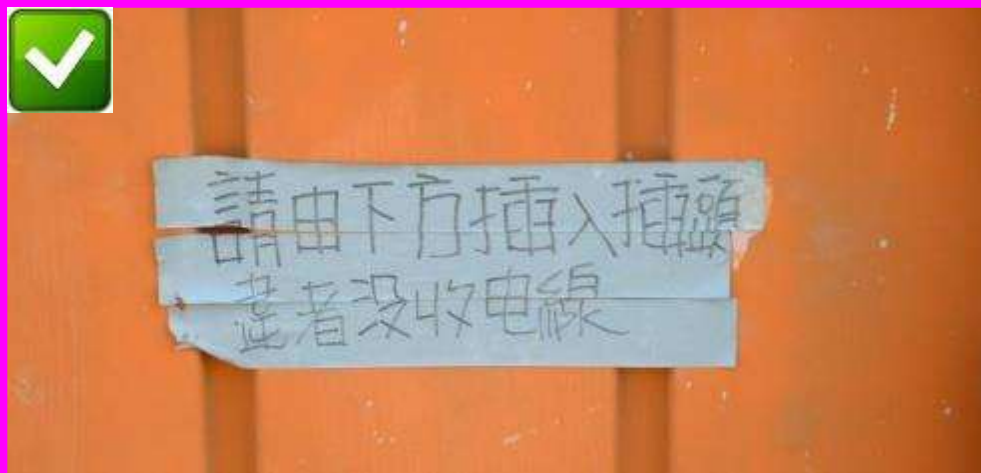 請由下方插入插頭
違者没收电線